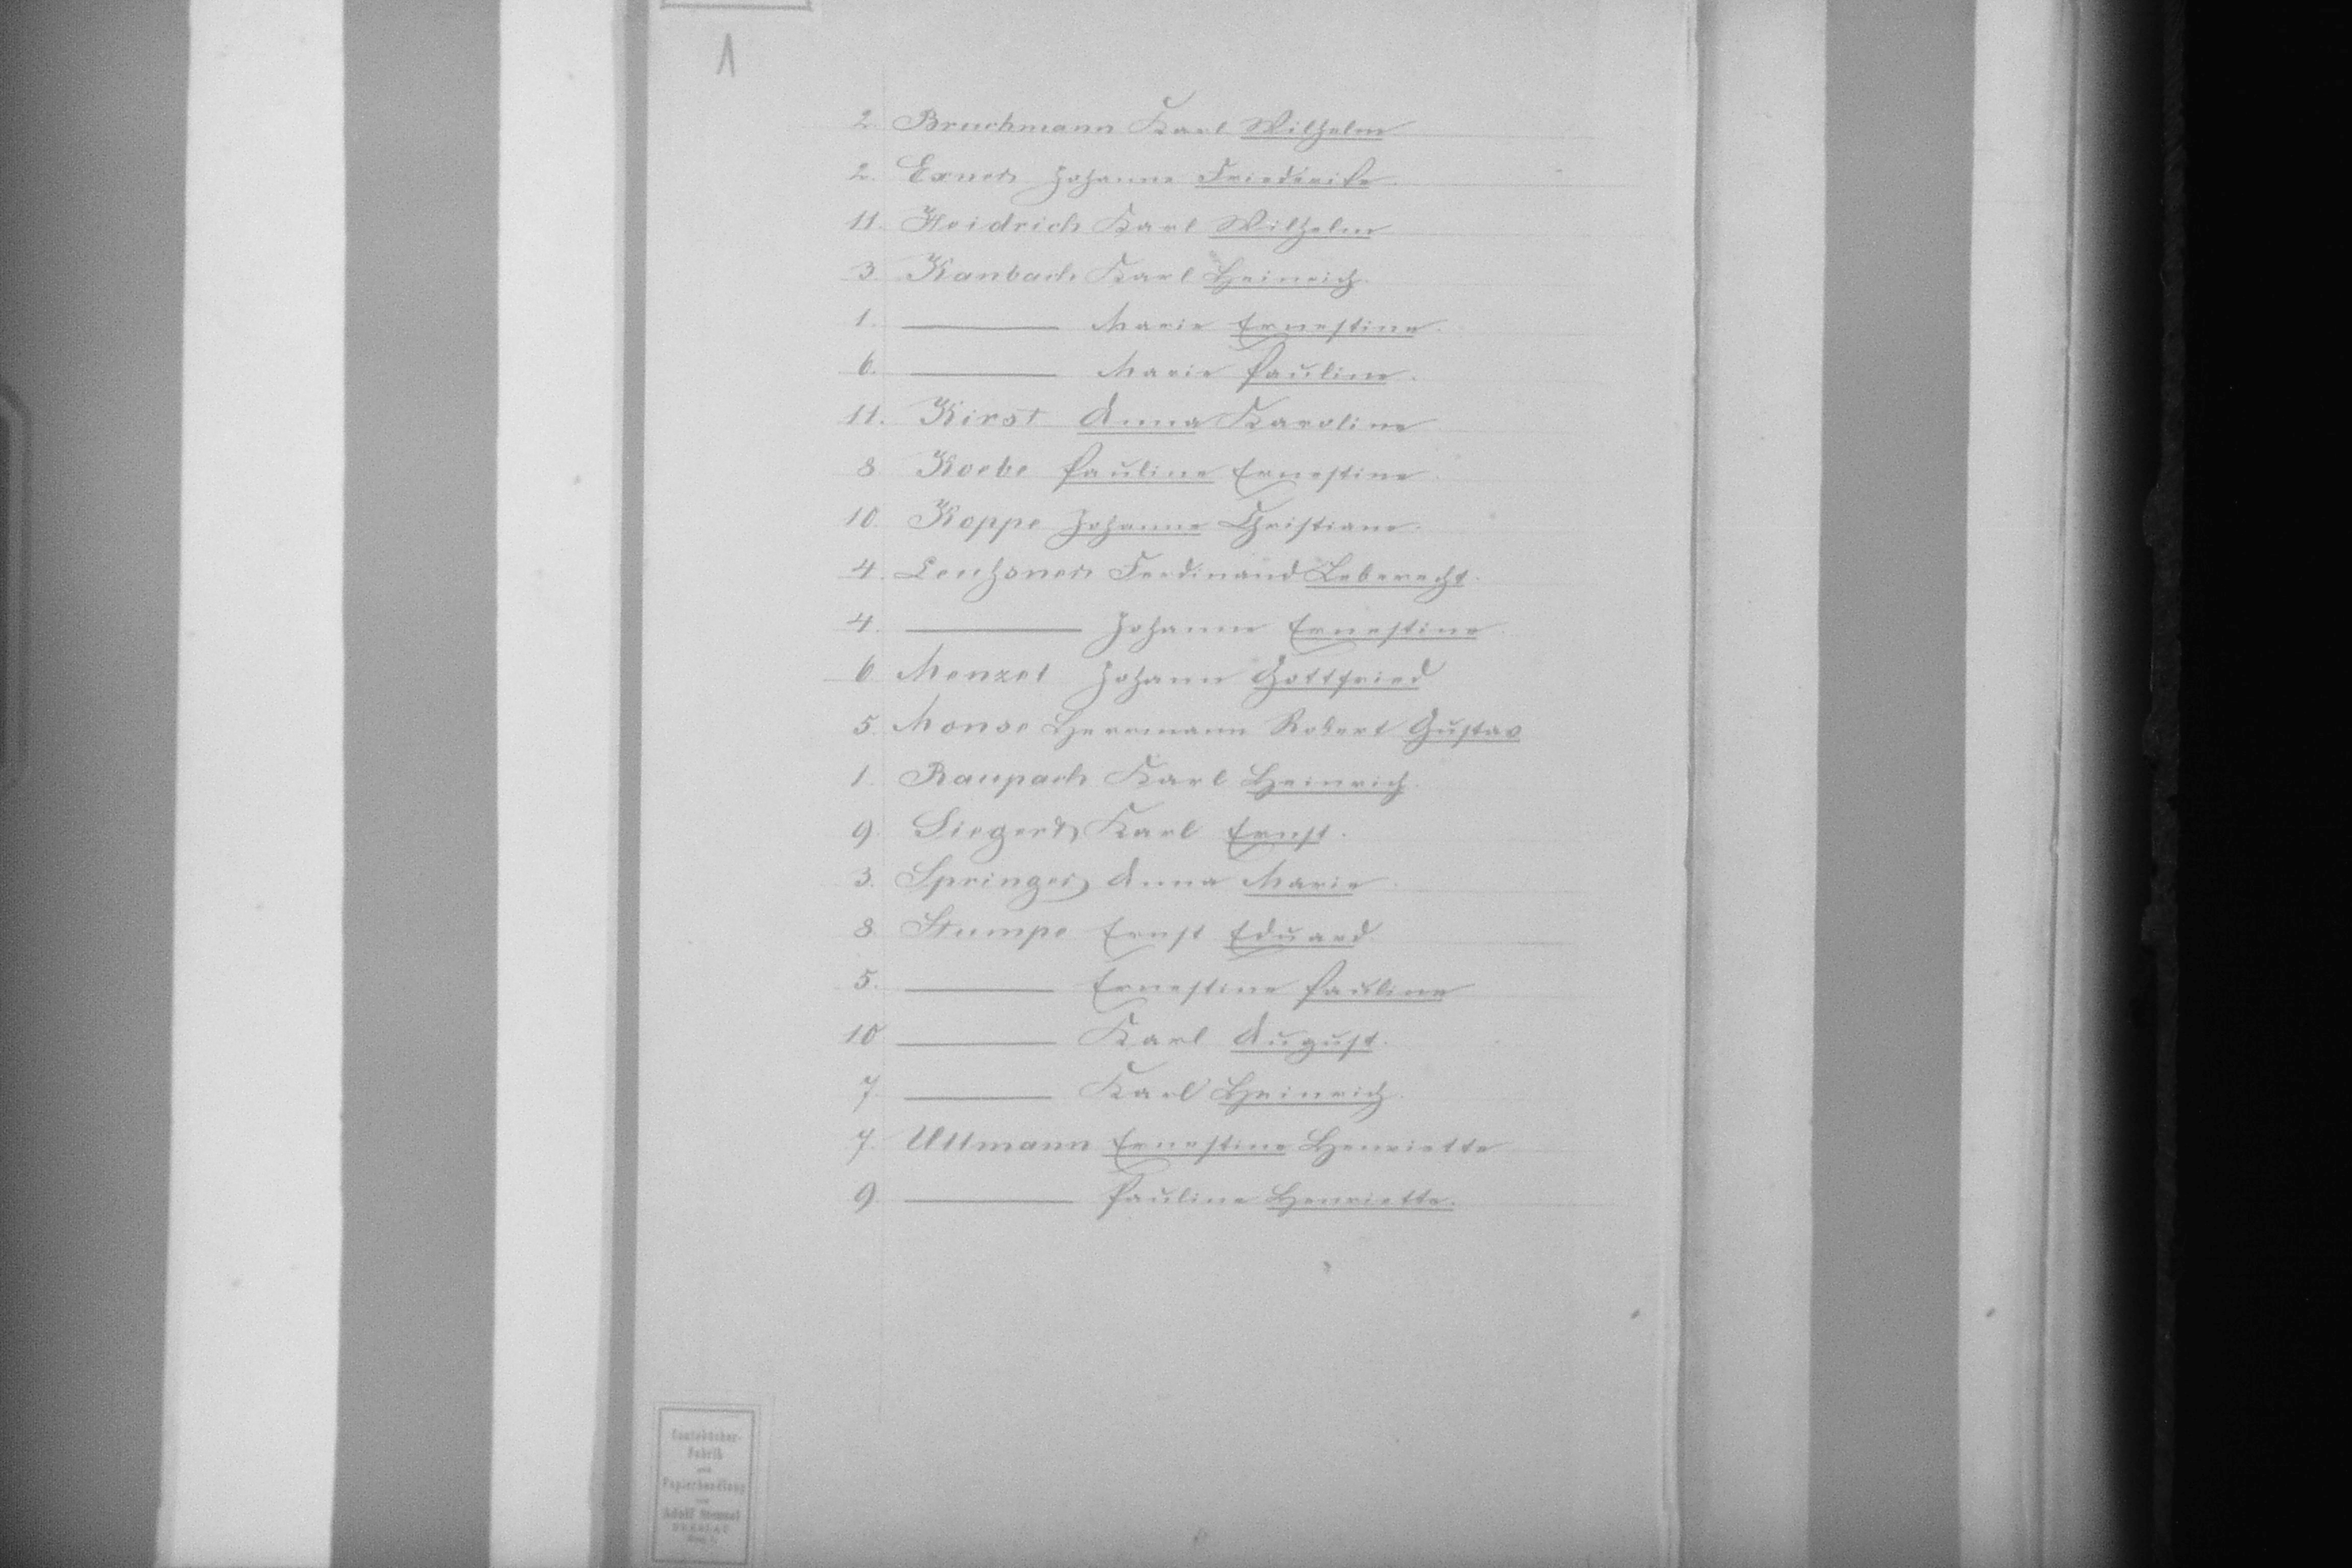 1
2. Bruchmann Karl Wilhelm
2. Exner Johanne Friederike.
11. Heidrich Karl Wilhelm
3. Kanbach Karl Heinrich.
1. ——— Marie Ernestine.
6. ——— Marie Pauline.
11. Kirst Anna Karoline
8. Koebe Pauline Ernestine.
10. Koppe Johanne Christiane.
4. Leuhsner Ferdinand Leberecht.
4. ——— Johanne Ernestine.
6. Menzel Johann Gottfried
5. Monse Herrmann Robert Gustav
1. Raupach Karl Heinrich.
9. Siegert Karl Ernst.
3. Springer Anna Marie.
8. Stumpe Ernst Eduard.
5. ——— Ernestine Pauline
10 ——— Karl August.
7. ——— Karl Heinrich.
7. Ullmann Ernestine Henriette
9. ——— Pauline Henriette.
Contobücher-
Fabrik
und
Papierhandlung
von
Adolf
BRESLAU